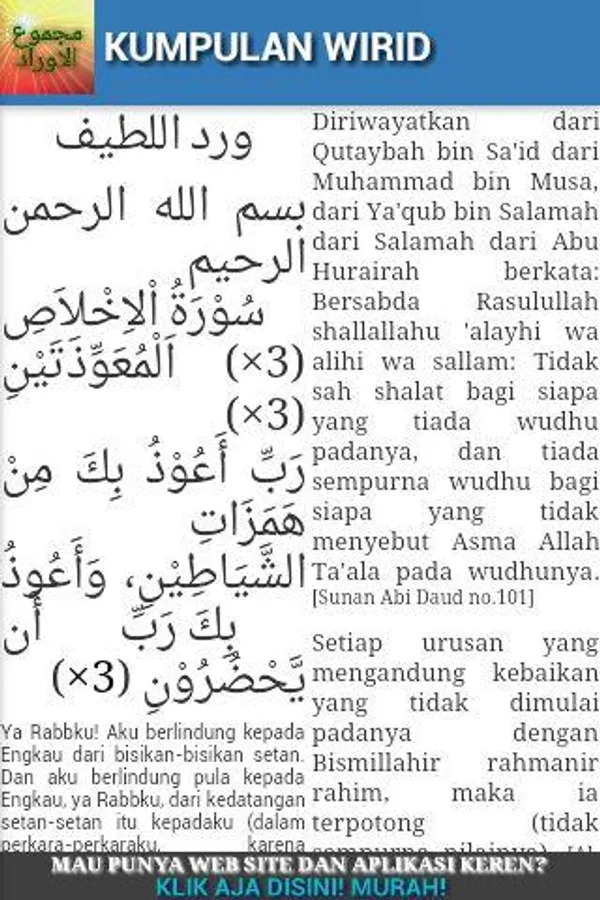 مجموع
الاوراد
KUMPULAN WIRID
ورد اللطيف
بسم الله الرحمن
الرحيم
سُوْرَةُ اْلاِخْلاَصِ
(3×) اَلْمُعَوِّذَتَيْنِ
(3×)
رَبِّ أَعُوْذُ بِكَ مِنْ
هَمَزَاتِ
الشَّيَاطِيْنِ، وَأَعُوذُ
بِكَ رَبِّ أَن
يَّحْضُرُوْنِ (3×)
Ya Rabbku! Aku berlindung kepada
Engkau dari bisikan-bisikan setan.
Dan aku berlindung pula kepada
Engkau, ya Rabbku, dari kedatangan
setan-setan itu kepadaku (dalam
perkara-perkaraku, karena
Diriwayatkan dari
Qutaybah bin Sa'id dari
Muhammad bin Musa,
dari Ya'qub bin Salamah
dari Salamah dari Abu
Hurairah berkata:
Bersabda Rasulullah
shallallahu 'alayhi wa
alihi wa sallam: Tidak
sah shalat bagi siapa
yang tiada wudhu
padanya, dan tiada
sempurna wudhu bagi
siapa yang tidak
menyebut Asma Allah
Ta'ala pada wudhunya.
[Sunan Abi Daud no.101]
Setiap urusan yang
mengandung kebaikan
yang tidak dimulai
padanya dengan
Bismillahir rahmanir
rahim, maka ia
terpotong (tidak
sempurna nilainya). [Al
MAU PUNYA WEB SITE DAN APLIKASI KEREN?
KLIK AJA DISINI! MURAH!